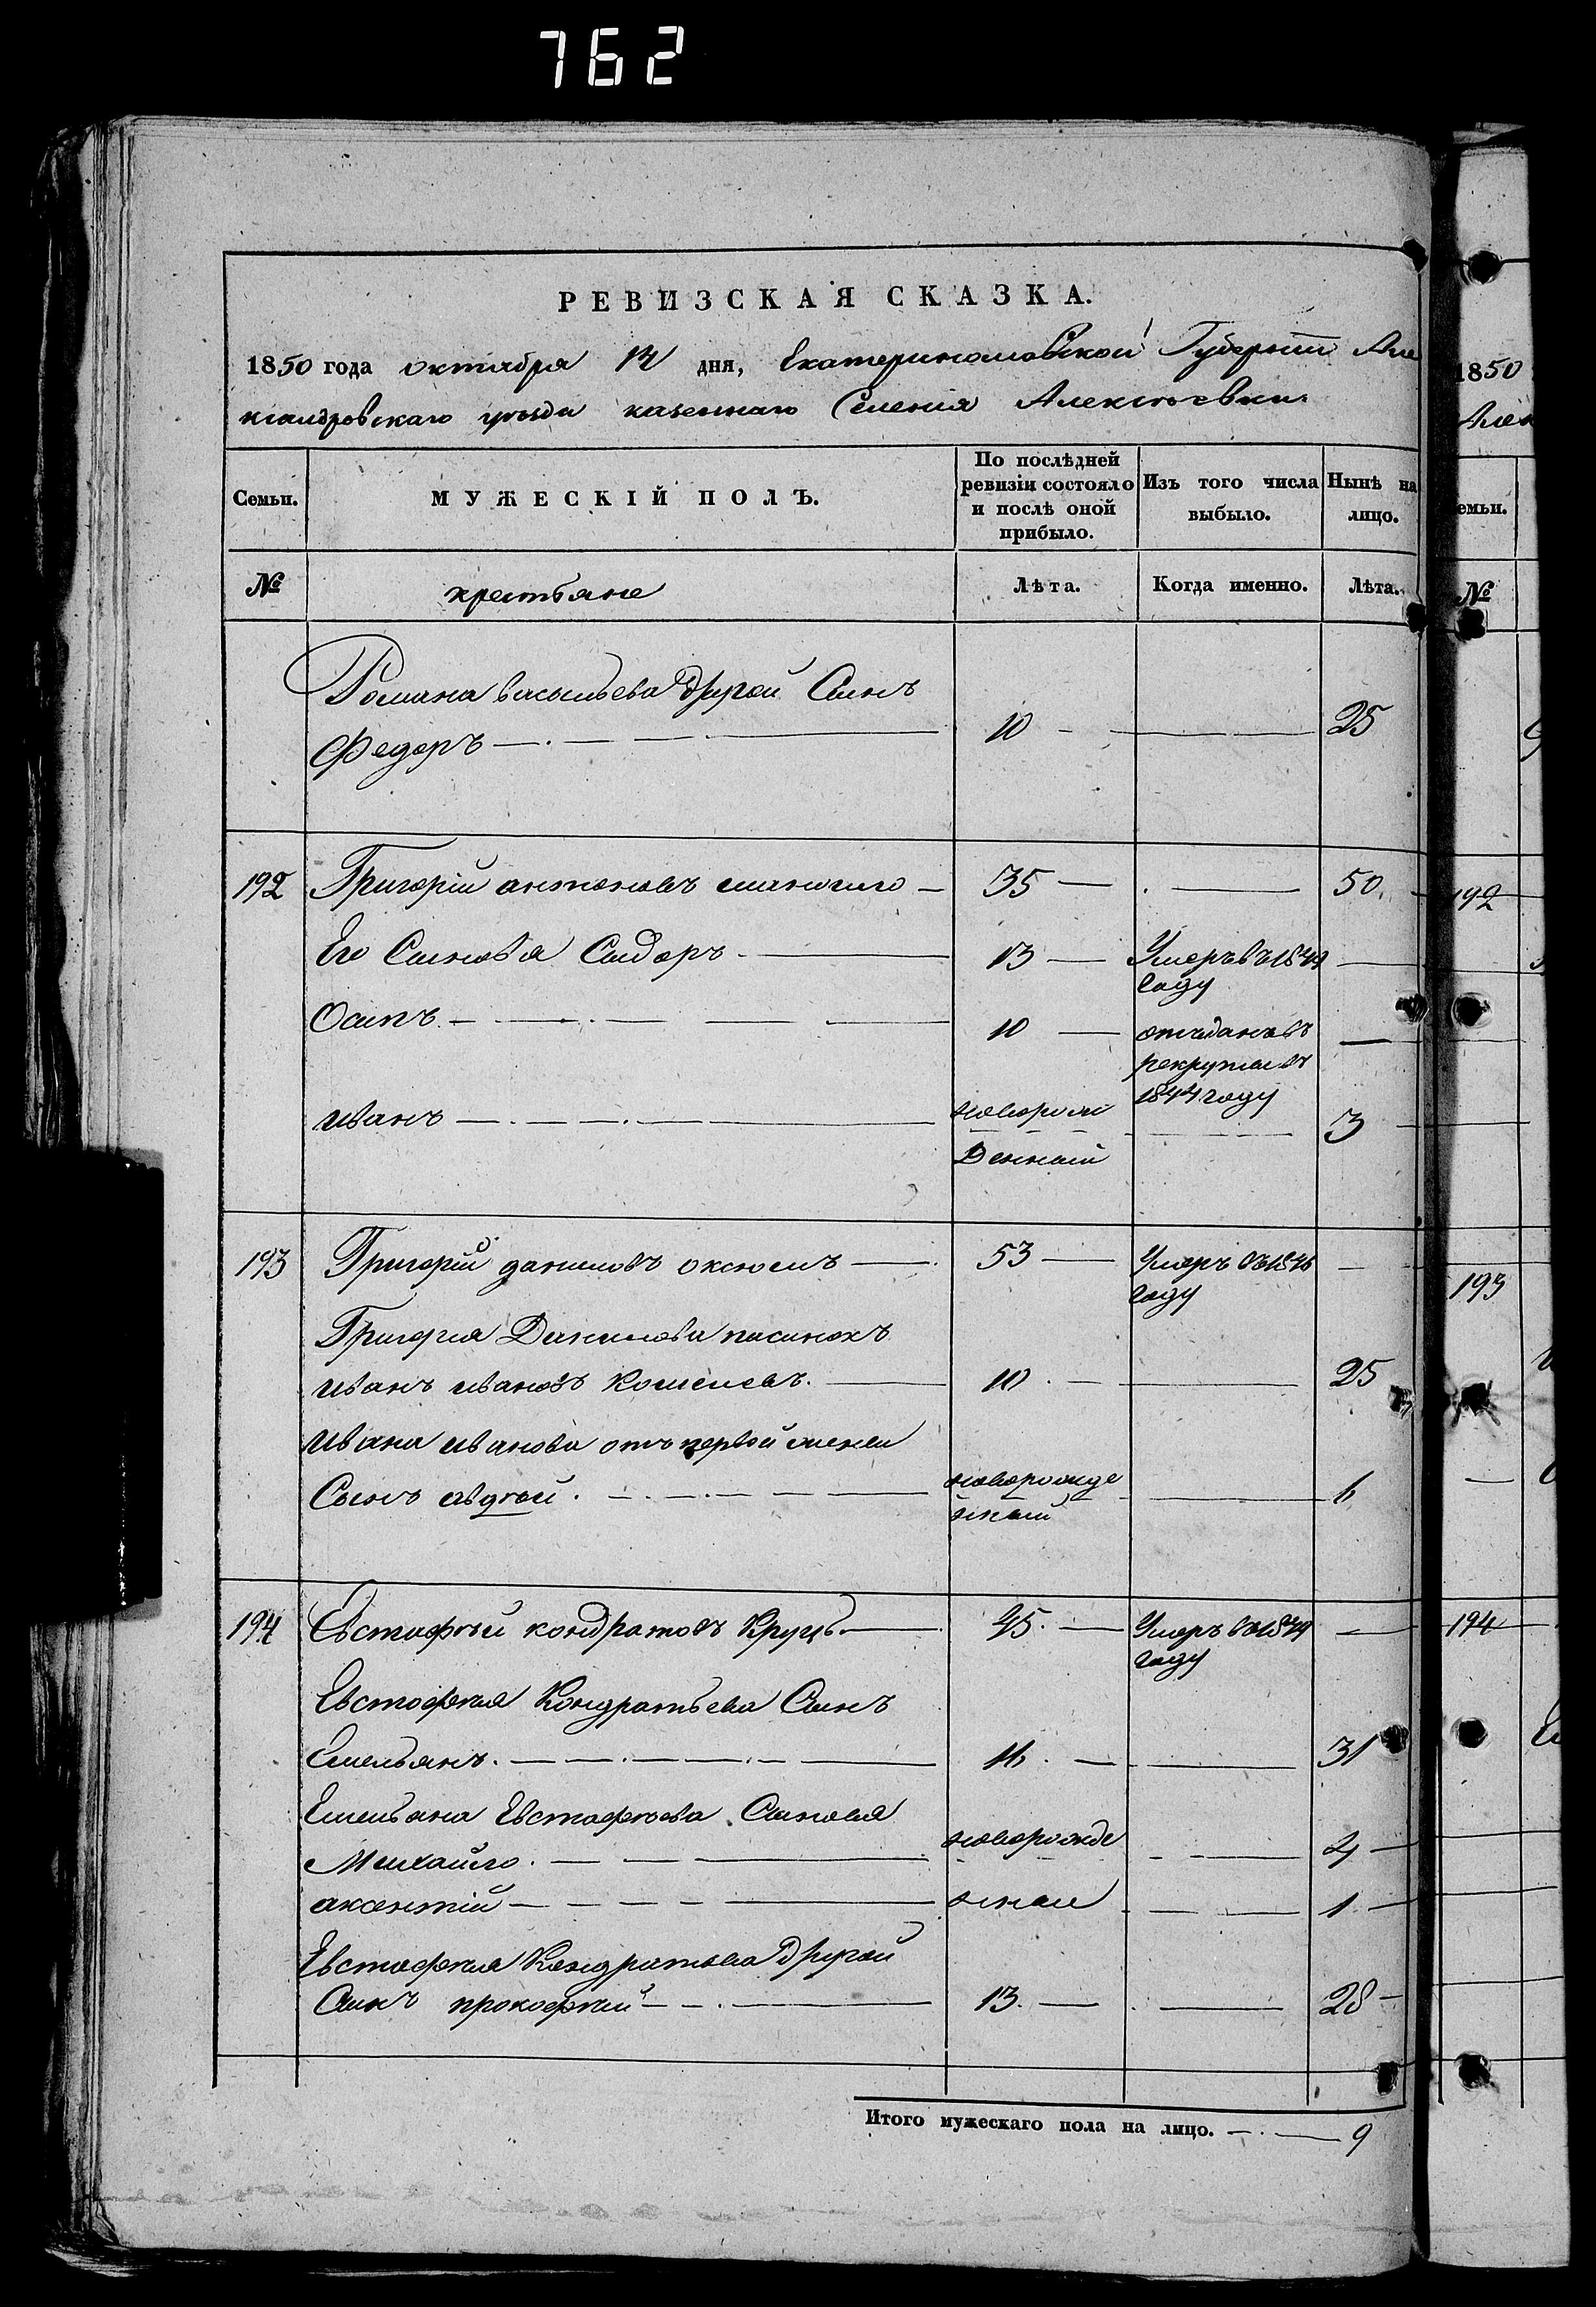 762
РЕВИЗСКАЯ СКАЗКА.
1850 года октября 14 дня, Екатеринославской Губернии Але
ксандровскаго уезда казеннаго Селенія Алексѣевки
Семьи.
МУЖЕСКІЙ ПОЛЪ.
По послѣдней ревизіи состояло и послѣ оной прибыло.
Изъ того числа выбыло.
Нынѣ на лицо.
№
крестьяне
Лѣта.
Когда именно.
Лѣта.
Романа васильева другой Сынъ
Федоръ 10 25
192 Григорій антоновъ 35 50
Его Сыновья Сидоръ 13 Умеръ въ 1849
году
Осипъ 10 отъданъ въ
рекруты въ
1844 году
иванъ новорож 3
Денный
193 Григорій даниловъ 53 Умеръ въ 1846
году
Григорія Данилова пасынокъ
иванъ ивановъ 10 25
ивана иванова отъ первой жены
Сынъ авдѣй новорожде 6
нный
194 Евстафѣй кондратовъ Круць 45 Умеръ въ 1849
году
Евстафѣя Кондратьева Сынъ
Емельянъ 16 31
Емельяна Евстафѣева Сыновья
Михайло новорожде 4
аксентій нные 1
Евстафѣя Кондратьева другой
Сынъ прокофѣй 13 28
Итого мужескаго пола на лицо. 9
1850
Алек
емьи.
№
192
193
194